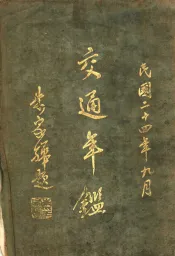 民國二十四年九月
交通年鑑
朱家驊題